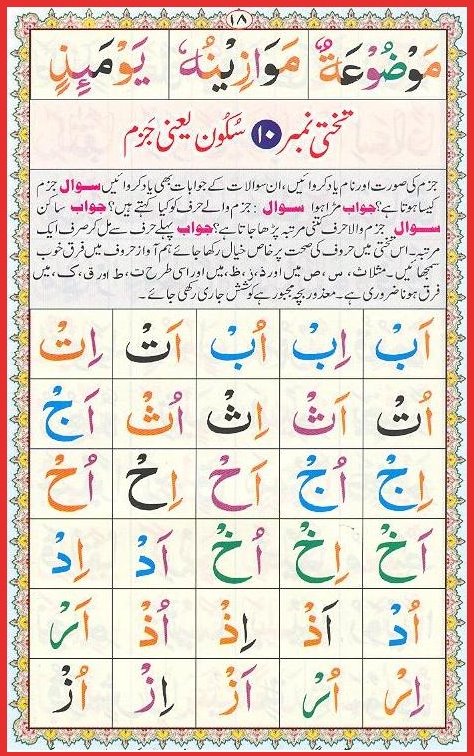 ۱۸
مَوْضُوْعَةٌ مَوَازِيْنُهٗ يَوْمَئِذٍ
تختی نمبر ۱۰ سُکُون یعنی جَزم
جزم کی صورت اور نام یاد کروائیں، ان سوالات کے جوابات بھی یاد کروائیں سوال جزم
کیسا ہوتا ہے؟ جواب مڑا ہوا سوال : جزم والے حرف کو کیا کہتے ہیں؟ جواب ساکن
سوال جزم والا حرف کتنی مرتبہ پڑھا جاتا ہے؟ جواب پہلے حرف سے مل کر صرف ایک
مرتبہ۔ اس تختی میں حرف کی صحت پر خاص خیال رکھا جائے، ہم آواز حروف میں فرق خوب
سمجھائیں۔ مثلاً ث، س، ص میں اور ذ، ز، ظ، میں اور اسی طرح ت، ط اور ق، ک، میں
فرق ہونا ضروری ہے۔ معذور بچہ مجبور ہے کوشش جاری رکھی جائے۔
اَبْ اِبْ اُبْ اَتْ اِتْ
اُتْ اَثْ اِثْ اُثْ اَجْ
اِجْ اُجْ اَحْ اِحْ اُحْ
اَخْ اِخْ اُخْ اَدْ اِدْ
اُدْ اَذْ اِذْ اُذْ اَرْ
اِرْ اُرْ اَزْ اِزْ اُزْ